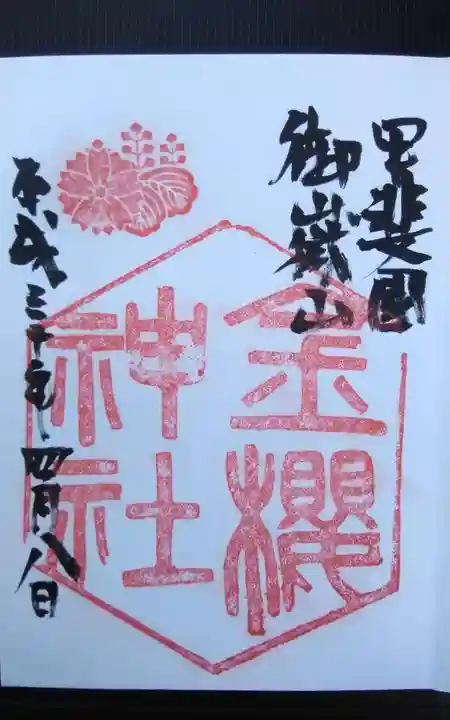 甲斐國
御嶽山
金櫻
神社
平成三十年四月八日